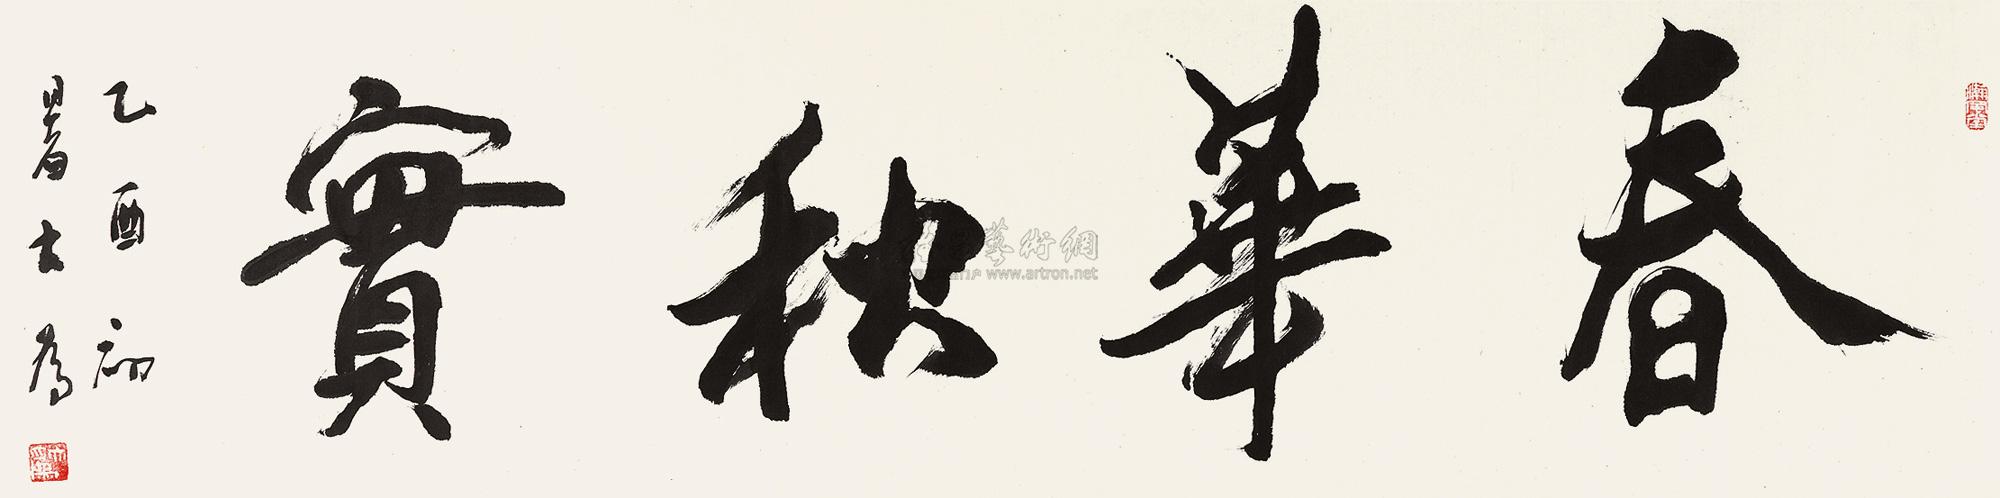 春華秋實
乙酉初
暑士為
藝術網
www.artron.net